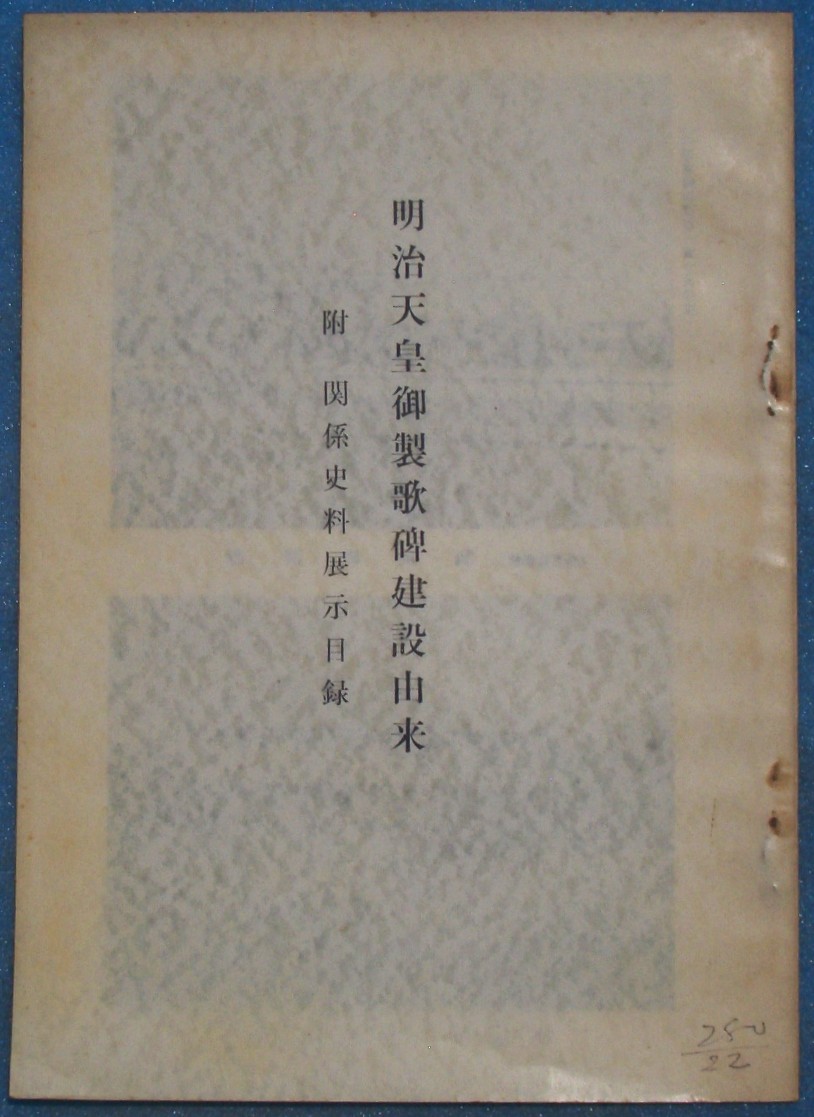 明治天皇御製歌碑建設由来
附 関係史料展示目録
22